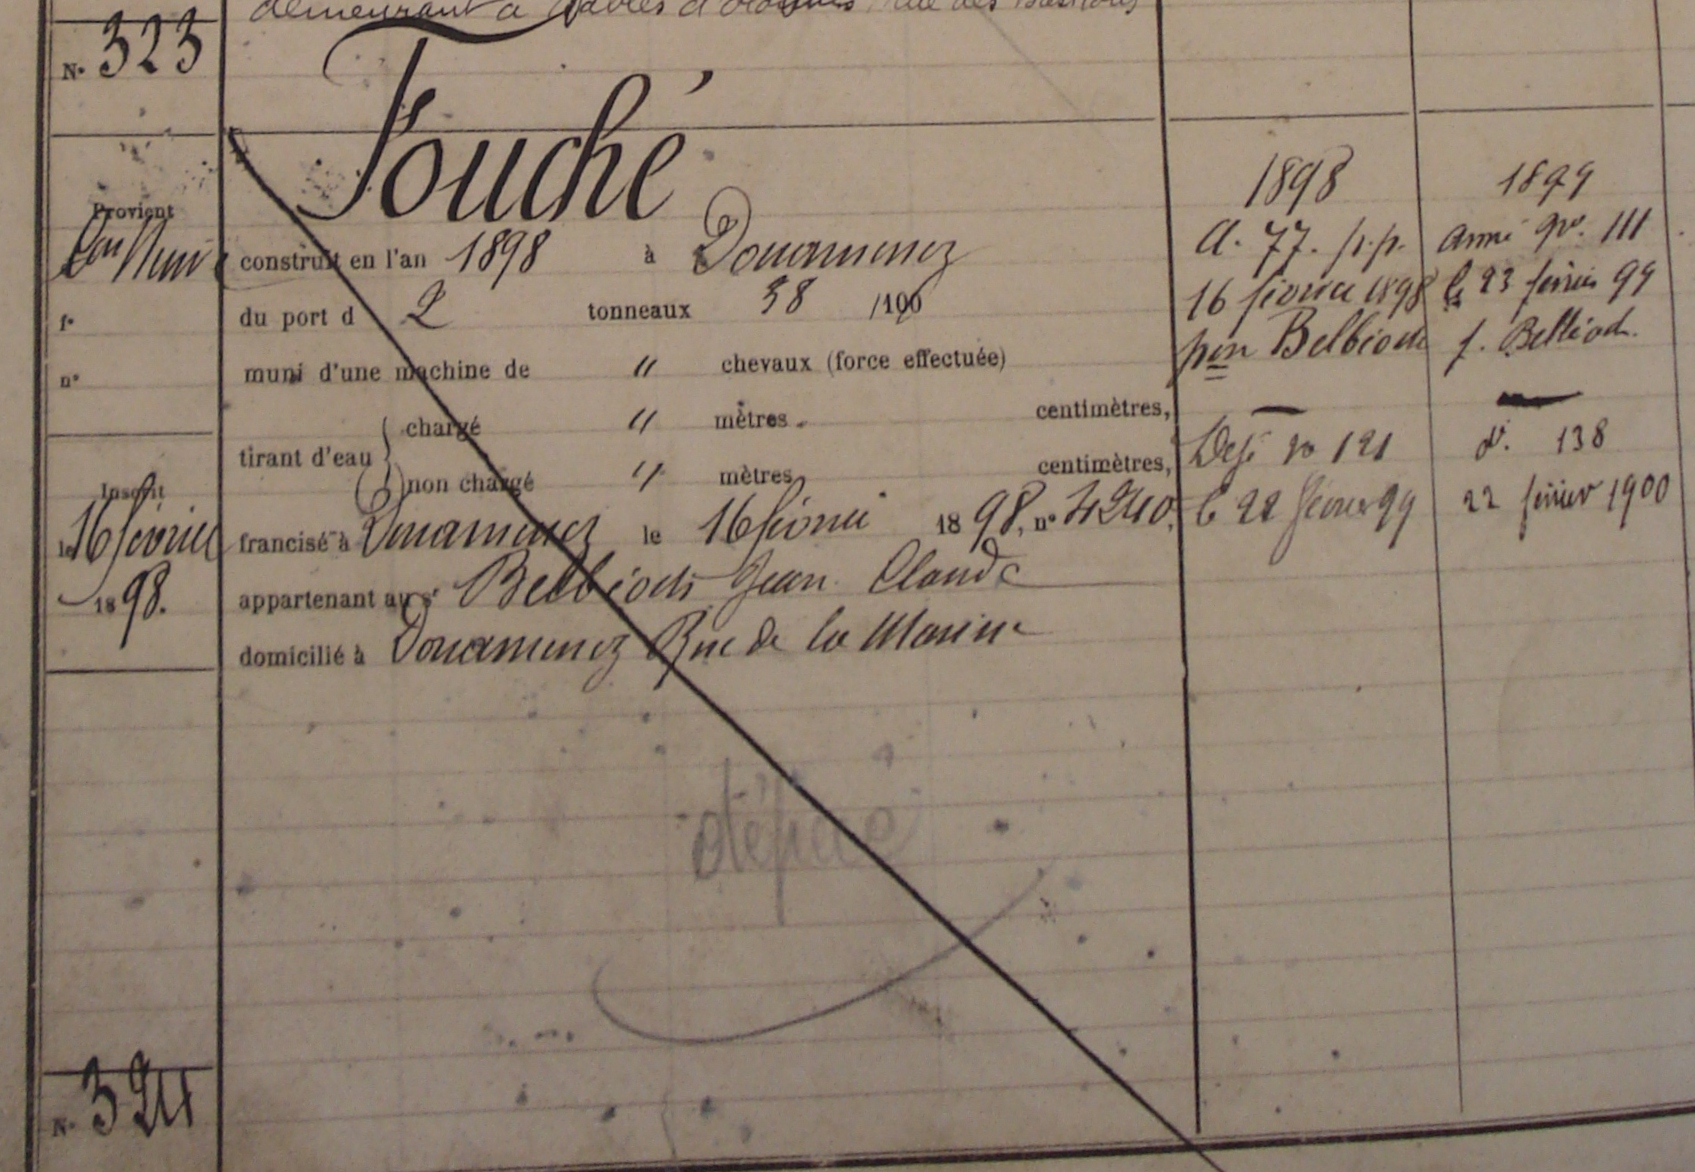 demeurant à Sables d'Olonnes rue des Bastions
N° 323
Fouché
Provient
Con Neuve
f°
n°
construit en l'an 1898 à Douarnenez
du port d 2 tonneaux 38 /100
muni d'une machine de " chevaux (force effectuée)
tirant d'eau
chargé " mètres centimètres,
non chargé " mètres centimètres,
Inscrit
le 16 février
1898.
francisé à Douarnenez le 16 février 1898, n° 4240,
appartenant au sr Belbéoch Jean Claude
domicilié à Douarnenez Rue de la Marine
1898
A. 77. p.p.
16 février 1898
par Belbéoch
Dep n° 121
le 22 février 99
1899
armé 111
le 23 février 99
p. Belbéoch
d°. 138
22 février 1900
N° 324